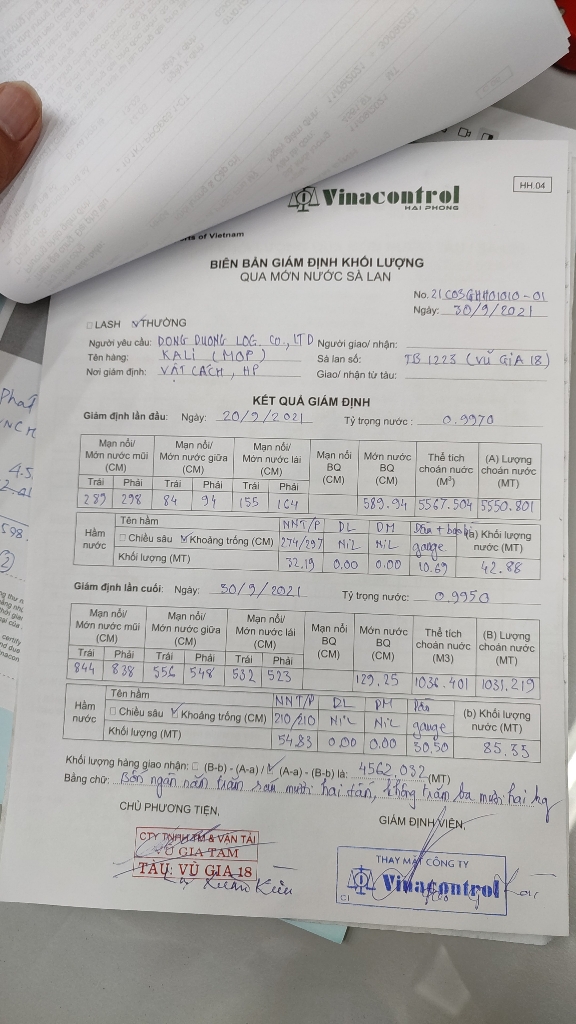 Vinacontrol
HAI PHONG
HH.04
of Vietnam
BIÊN BẢN GIÁM ĐỊNH KHỐI LƯỢNG
QUA MỚN NƯỚC SÀ LAN
No. 21C03GHH01010-01
Ngày: 30/9/2021
LASH THƯỜNG
Người yêu cầu: DONG DUONG LOG. CO., LTD Người giao/ nhận:
Tên hàng: KALI (MOP) Sà lan số: TB 1223 (VŨ GIA 18)
Nơi giám định: VẬT CÁCH, HP Giao/ nhận từ tàu:
KẾT QUẢ GIÁM ĐỊNH
Giám định lần đầu: Ngày: 20/9/2021 Tỷ trọng nước: 0.9970
Mạn nổi/ Mớn nước mũi (CM) Mạn nổi/ Mớn nước giữa (CM) Mạn nổi/ Mớn nước lái (CM) Mạn nổi BQ (CM) Mớn nước BQ (CM) Thể tích choán nước (M³) (A) Lượng choán nước (MT)
Trái Phải Trái Phải Trái Phải
289 298 84 94 155 164 589.94 5567.504 5550.801
Hầm nước Tên hầm NNT/P DL DM Dầu + (a) Khối lượng nước (MT)
Chiều sâu Khoảng trống (CM) 274/297 NiL NiL gauge
Khối lượng (MT) 32.19 0.00 0.00 10.69 42.88
Giám định lần cuối: Ngày: 30/9/2021 Tỷ trọng nước: 0.9950
Mạn nổi/ Mớn nước mũi (CM) Mạn nổi/ Mớn nước giữa (CM) Mạn nổi/ Mớn nước lái (CM) Mạn nổi BQ (CM) Mớn nước BQ (CM) Thể tích choán nước (M3) (B) Lượng choán nước (MT)
Trái Phải Trái Phải Trái Phải
844 838 556 548 532 523 129.25 1036.401 1031.219
Hầm nước Tên hầm NNT/P DL DM (b) Khối lượng nước (MT)
Chiều sâu Khoảng trống (CM) 210/210 NiL NiL gauge
Khối lượng (MT) 54.83 0.00 0.00 30.50 85.33
Khối lượng hàng giao nhận: (B-b) - (A-a) / (A-a) - (B-b) là: 4562,032 (MT)
Bằng chữ: Bốn ngàn năm trăm sáu mươi hai tấn, không trăm ba mươi hai kg
CHỦ PHƯƠNG TIỆN, GIÁM ĐỊNH VIÊN,
CTY TNHH TM & VẬN TẢI
VŨ GIA TAM
TÀU: VŨ GIA 18
Xuân Kiều
THAY MẶT CÔNG TY
Vinacontrol
C1